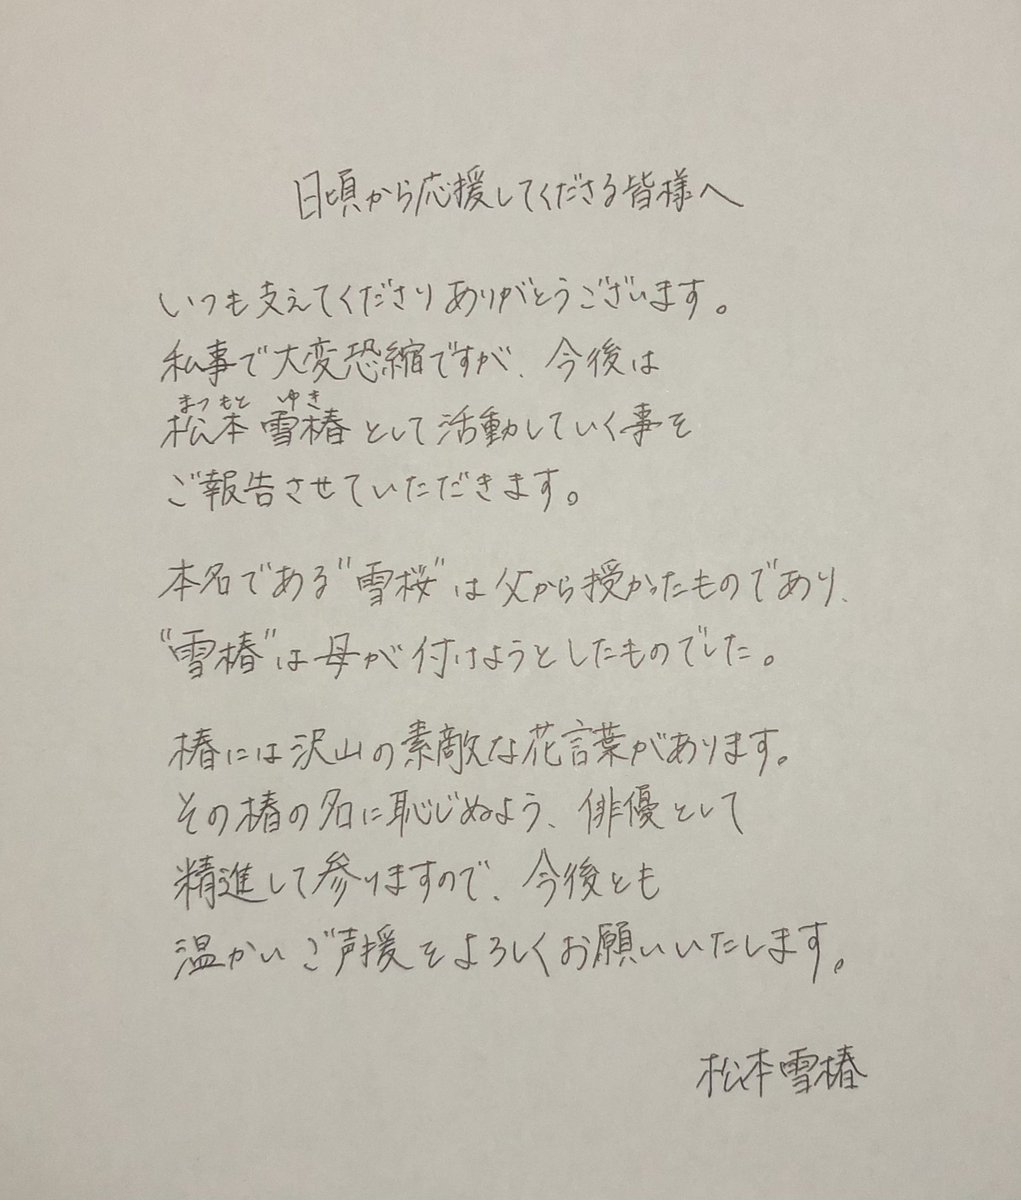 日頃から応援してくださる皆様へ
いつも支えてくださりありがとうございます。
私事で大変恐縮ですが、今後は
まつもと ゆき
松本 雪椿として活動していく事を
ご報告させていただきます。
本名である"雪桜"は父から授かったものであり、
"雪椿"は母が付けようとしたものでした。
椿には沢山の素敵な花言葉があります。
その椿の名に恥じぬよう、俳優として
精進して参りますので、今後とも
温かいご声援をよろしくお願いいたします。
松本雪椿